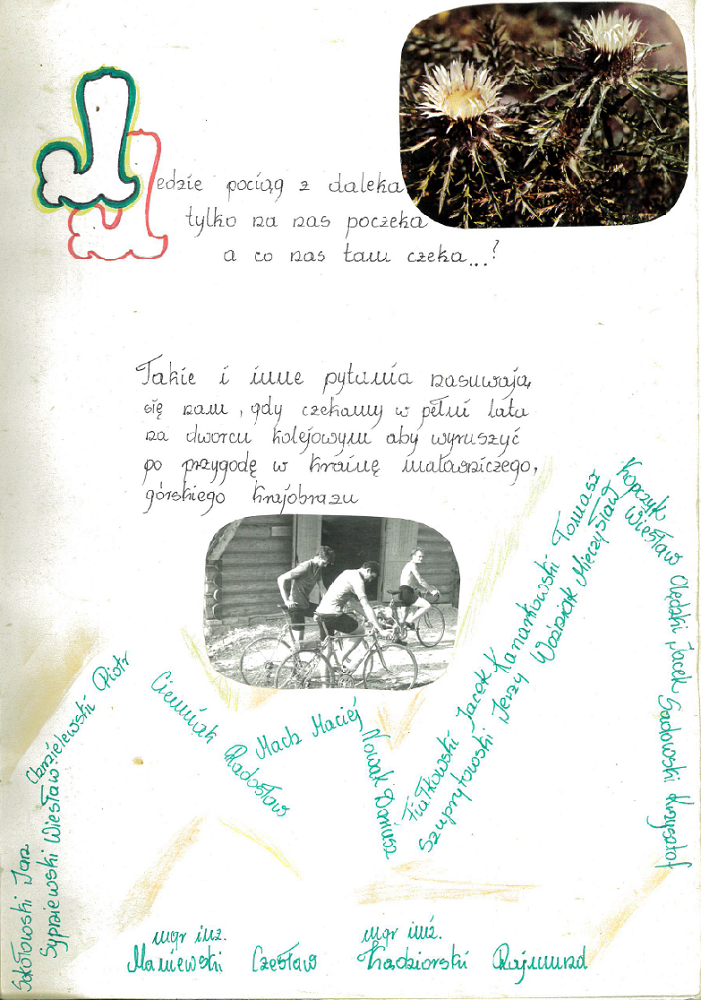 Jedzie pociąg z daleka
tylko na nas poczeka
a co nas tam czeka...?
Takie i inne pytania nasuwają
się nam, gdy czekamy w pełni lata
na dworcu kolejowym aby wyruszyć
po przygodę w krainę malowniczego,
górskiego krajobrazu
Sokołowski Jan
Sypniewski Wiesław
Chmielewski Piotr
Ciemniak Radosław
Mach Maciej
Nowak Dariusz
Fiałkowski Jacek Kanarkowski Tomasz
Szuprytowski Jerzy Woźniak Mieczysław
Kopczyk Wiesław
Olędzki Jacek Sadowski Krzysztof
mgr inż.
Maniewski Czesław
mgr inż.
Kadziorski Rajmund